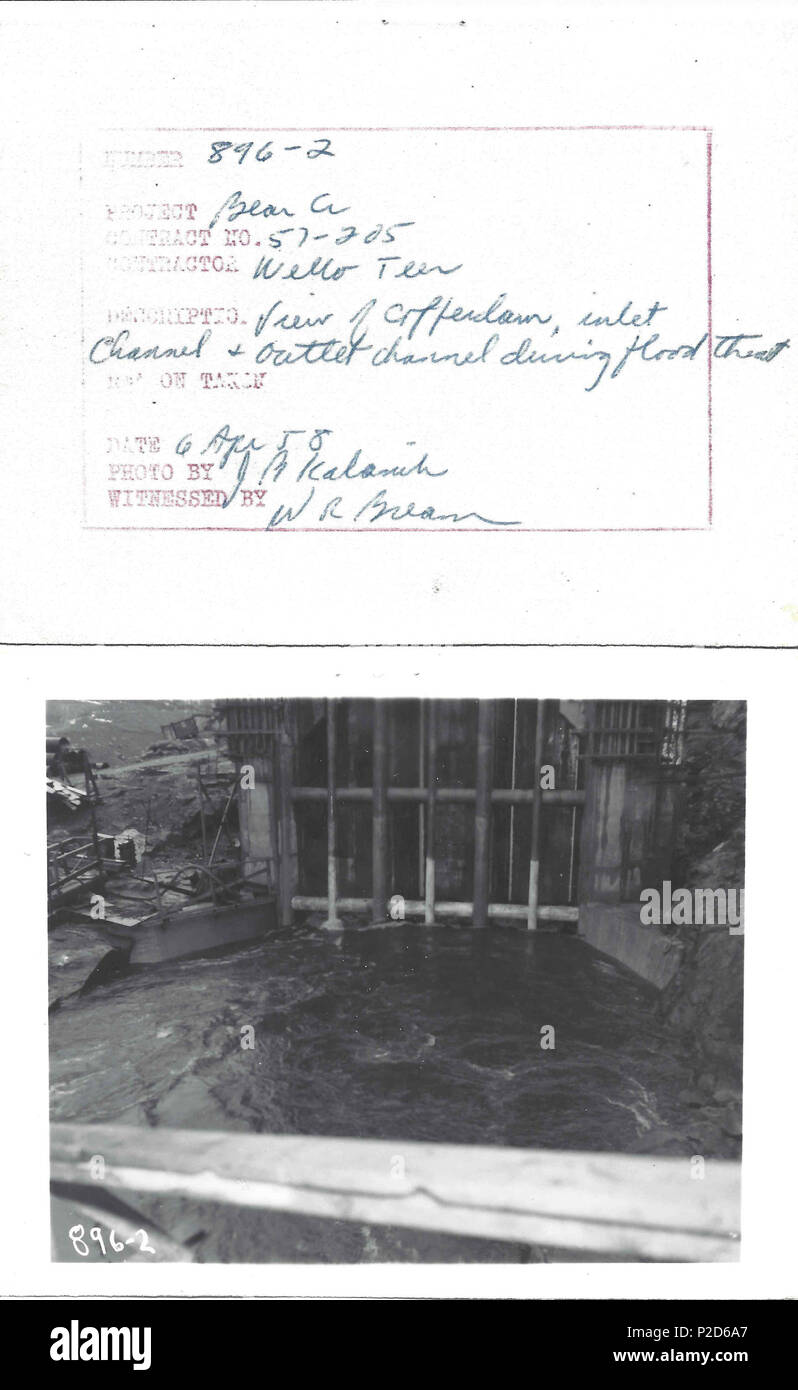 NUMBER 896-2
PROJECT Bear Cr
CONTRACT NO. 57-205
CONTRACTOR Wello Teer
DESCRIPTIO. View of Cofferdam, inlet
Channel + outlet channel during flood threat
ON TAKEN
DATE 6 Apr 58
PHOTO BY J A
WITNESSED BY
W R Bream
896-2
alamy
a
a
a
a
a
a
alamy
Image ID: P2D6A7
www.alamy.com